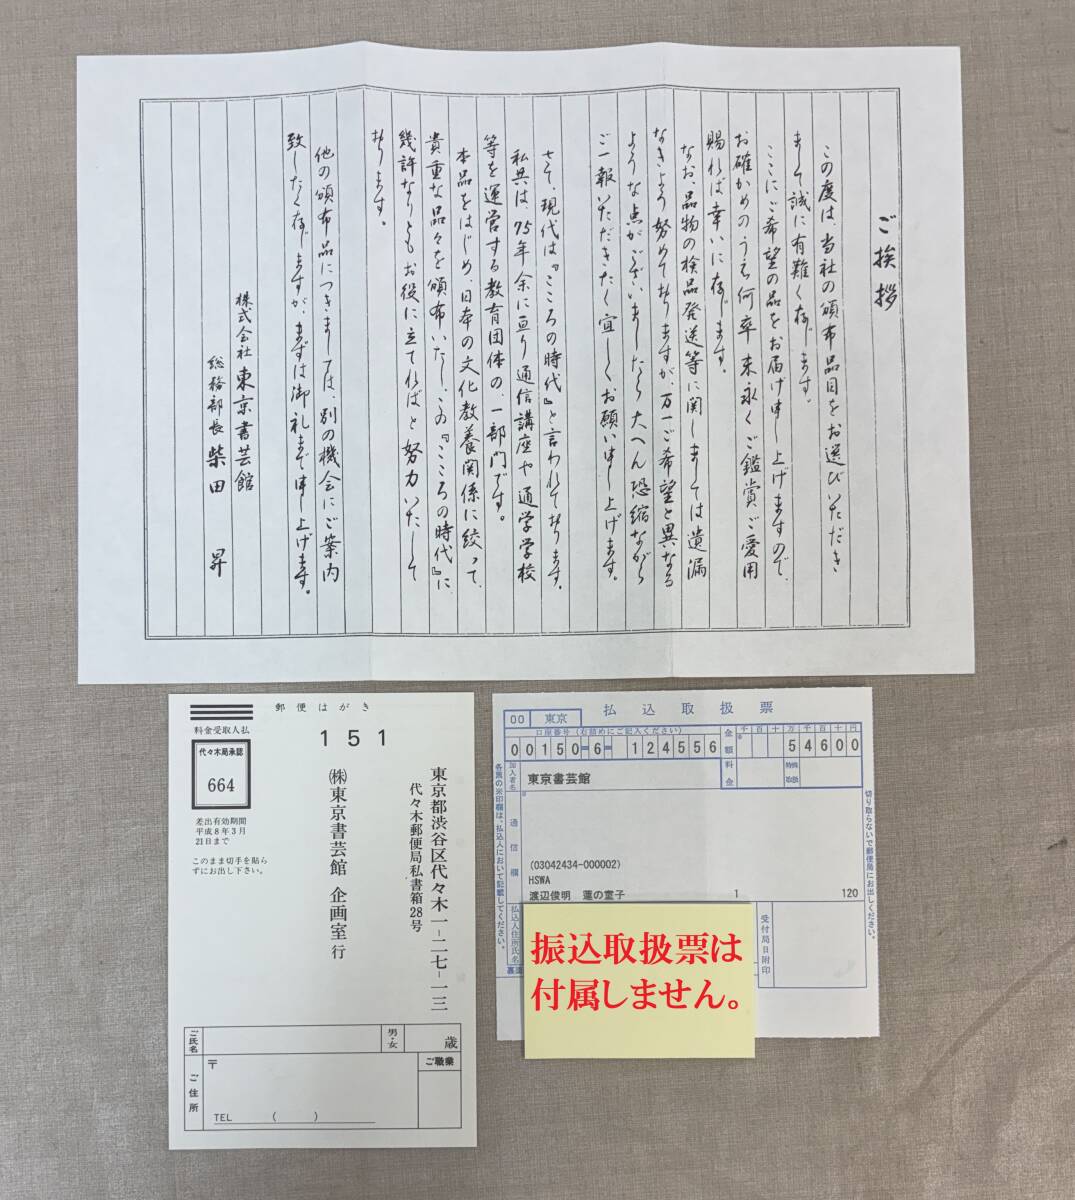 ご挨拶
この度は、当社の頒布品目をお選びいただき
まして誠に有難く存じます。
ここにご希望の品をお届け申し上げますので、
お確かめのうえ何卒末永くご鑑賞ご愛用
賜れば幸いに存じます。
なお、品物の検品発送等に関しましては遺漏
なきよう努めておりますが、万一ご希望と異なる
ような点がございましたら大へん恐縮ながら
ご一報いただきたく宜しくお願い申し上げます。
さて、現代は『こころの時代』と言われております。
私共は、75年余に亘り通信講座や通学学校
等を運営する教育団体の、一部門です。
本品をはじめ、日本の文化教養関係に絞って、
貴重な品々を頒布いたし、この『こころの時代』に
幾許なりともお役に立てればと努力いたして
おります。
他の頒布品につきましては、別の機会にご案内
致したく存じますが、まずは御礼まで申し上げます。
株式会社 東京書芸館
総務部長 柴田 昇
郵便はがき
料金受取人払
代々木局承認
664
差出有効期間
平成8年3月
21日まで
このまま切手を貼ら
ずにお出し下さい。
151
東京都渋谷区代々木一-二七-一三
代々木郵便局私書箱28号
㈱東京書芸館 企画室 行
ご氏名
男・女
歳
ご住所
〒
TEL ( )
ご職業
払込取扱票
00 東京
口座番号(右詰めにご記入ください)
00150-6-124556
金額
千百十万千百十円
54600
料金
特殊取扱
加入者名
東京書芸館
通信欄
(03042434-000002)
HSWA
渡辺俊明 蓮の童子 1 120
払込人住所氏名
受付局日附印
各票の※印欄は、払込人において記載してください。
切り取らないで郵便局にお出しください。
振込取扱票は
付属しません。